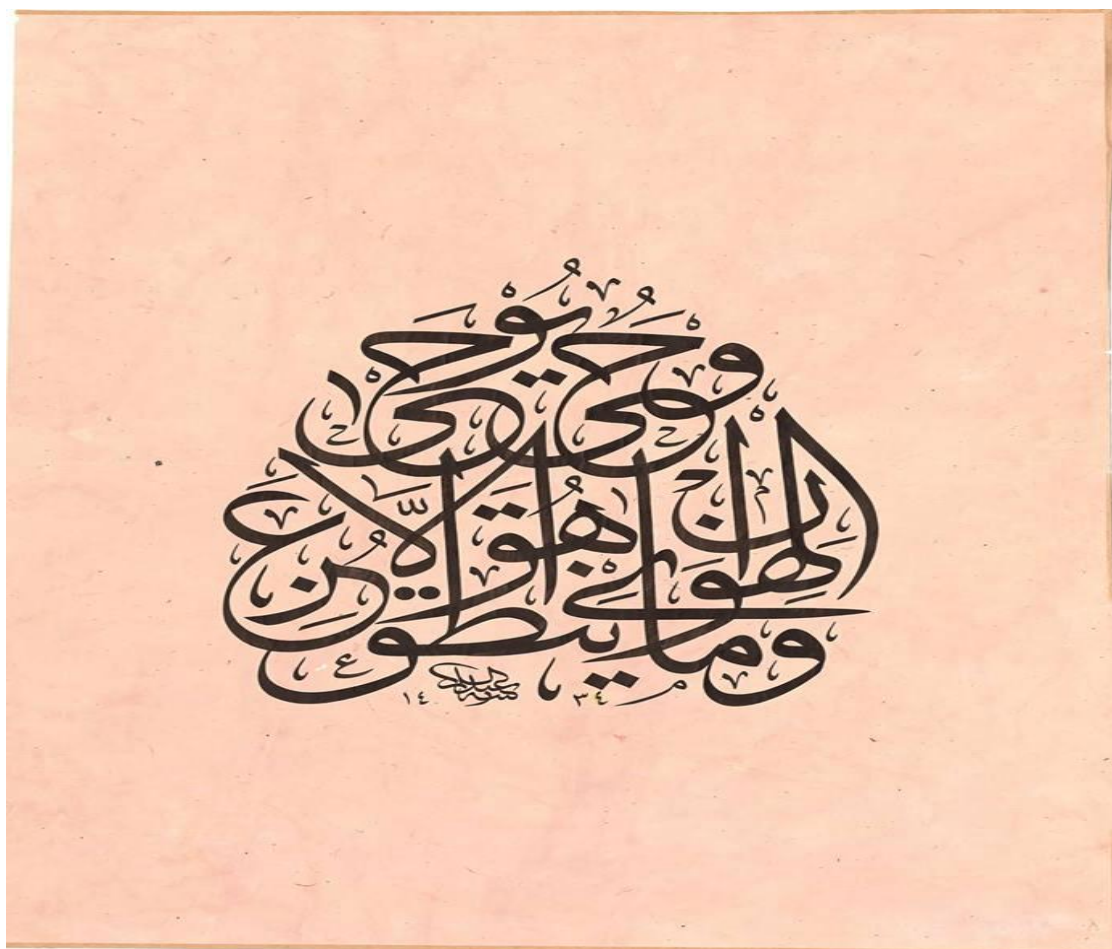 وَمَا يَنْطِقُ عَنِ الْهَوَى إِنْ هُوَ إِلَّا وَحْيٌ يُوحَى
١٤٣٤